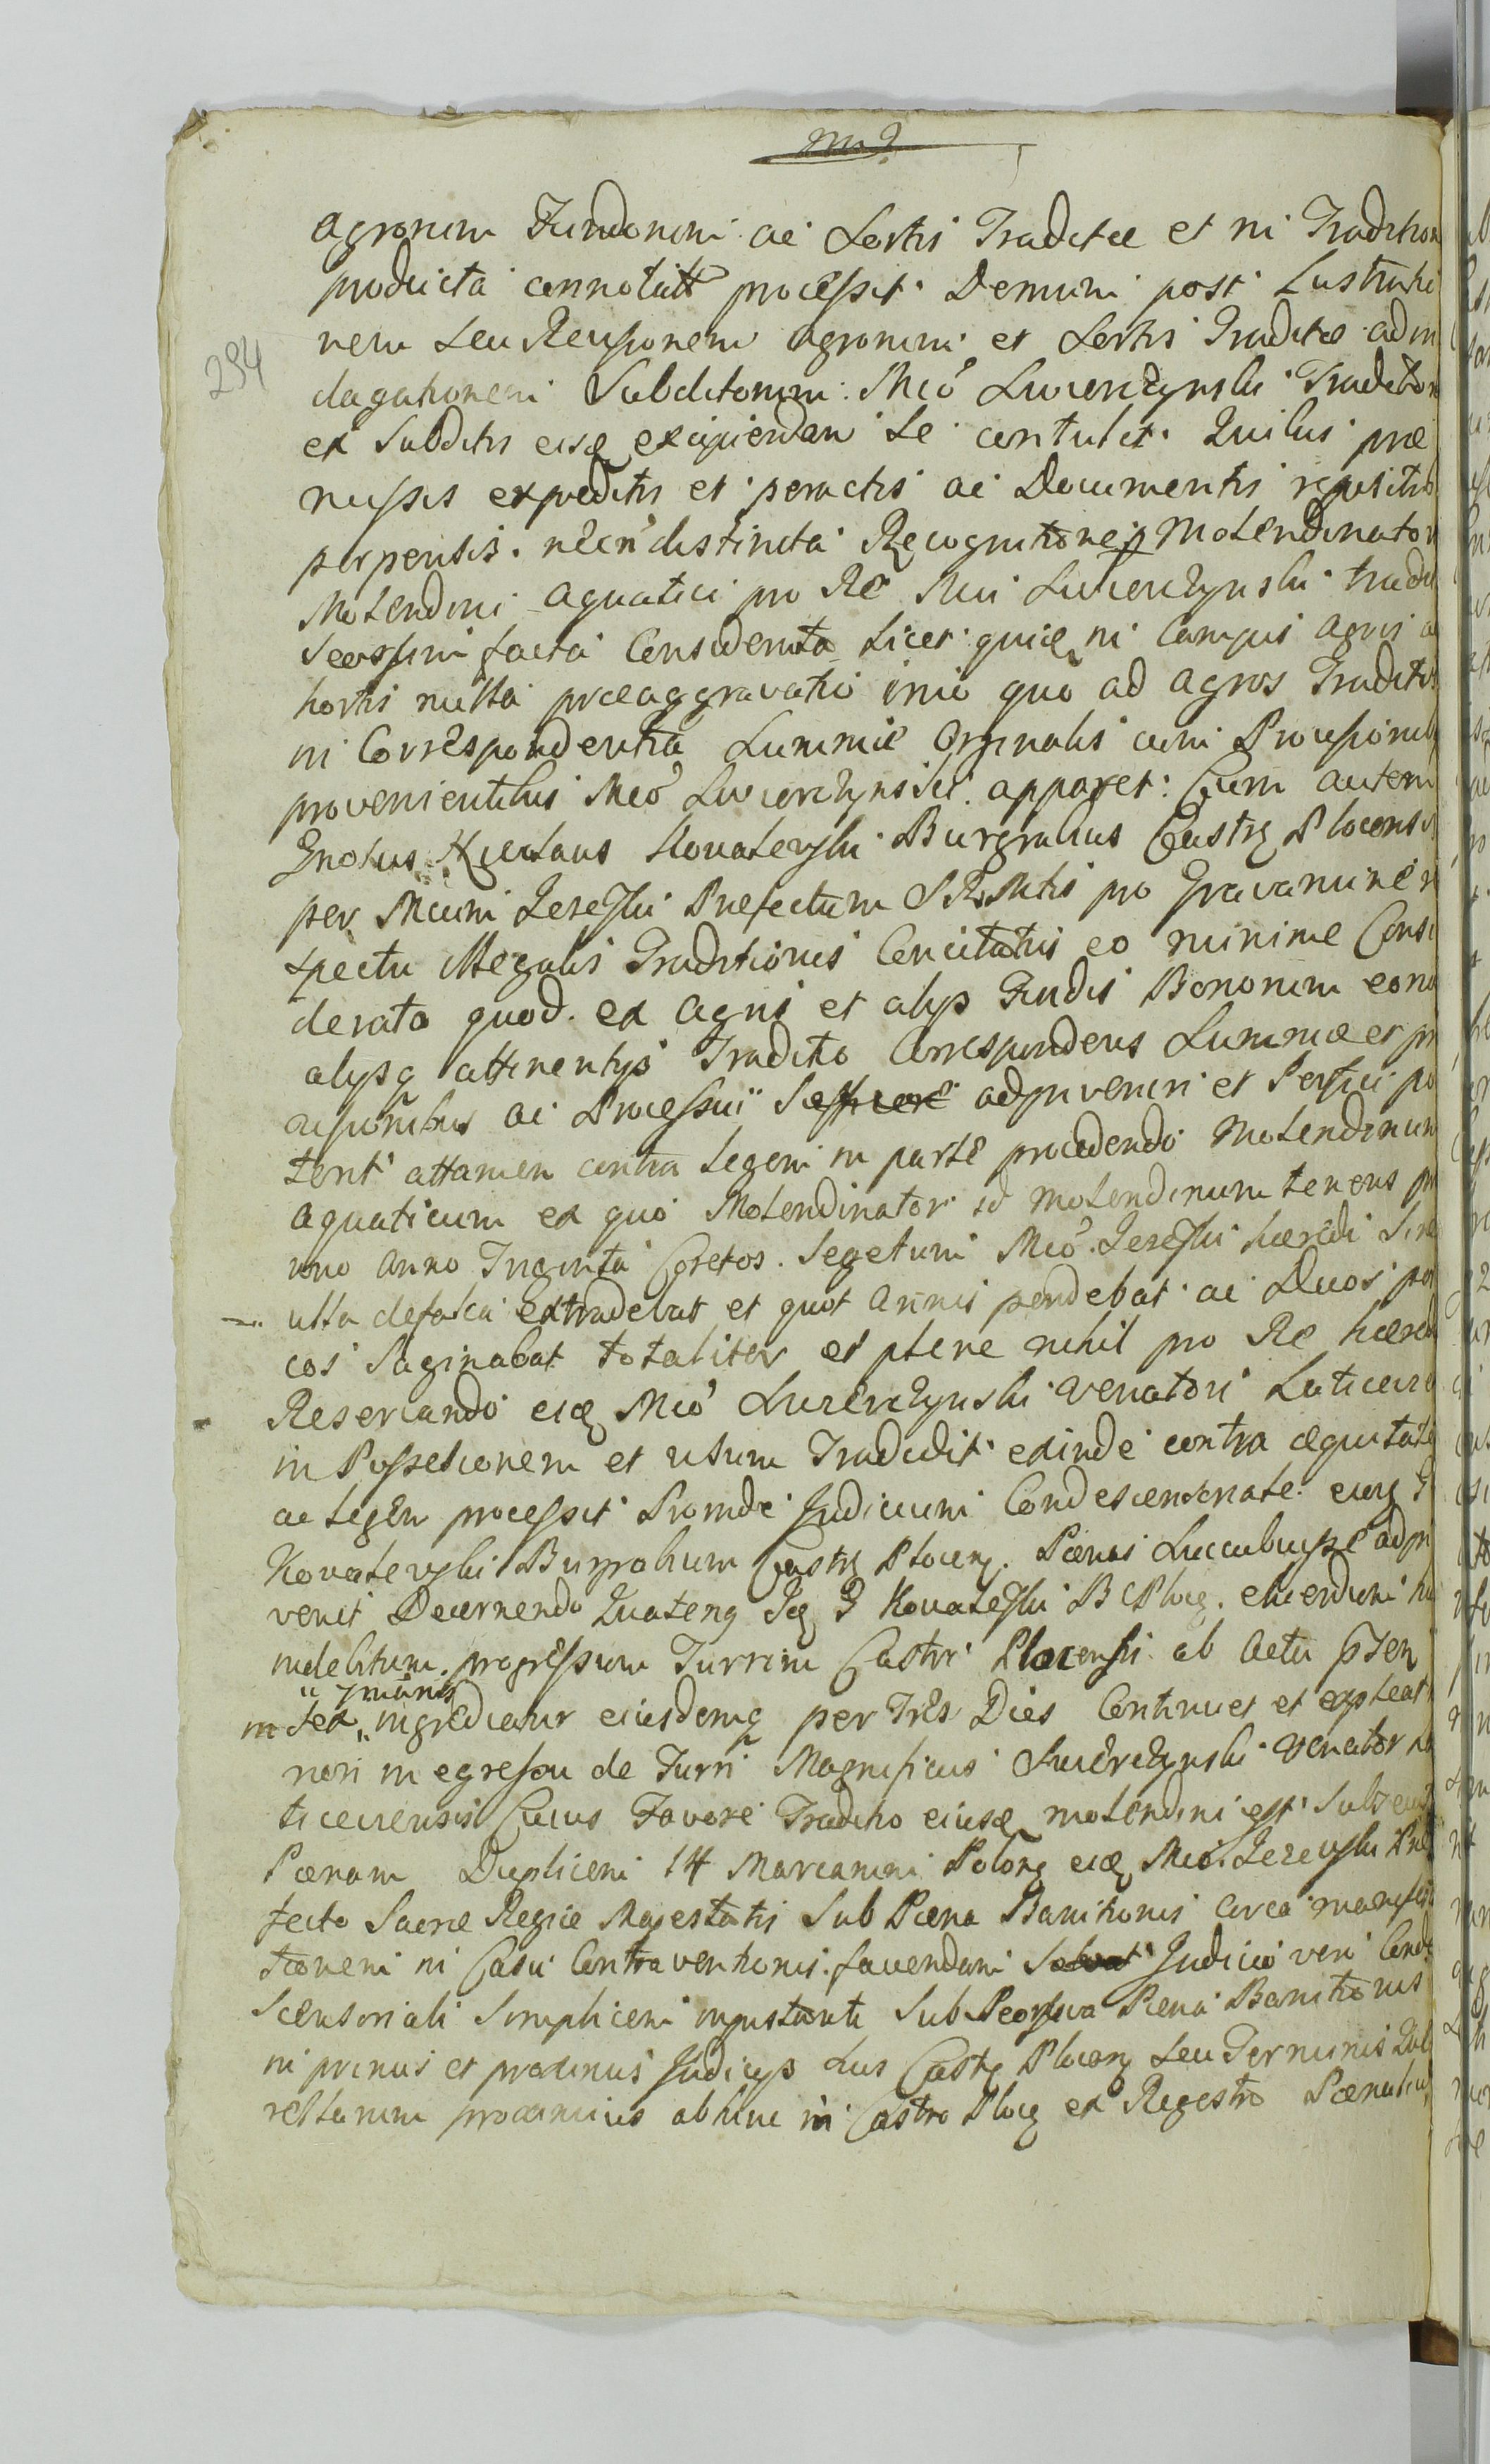 294
agrorum Fundorum ac Sortis Traditæ et in Tradition
producta connotatt processit. Demum post Lustratio
nem seu Revisionem agrorum et Sortis Traditæ ad in
dagationem Subditorum Mco Swierczynski Traditor
ex Subditis eisq excipiendam Se contulit. Quibus præ
missis expeditis et peractis ac Documentis repositis
perpensis. necn distincta Recognitione p Molendinator
Molendini aquatici pro Re Mci Swierczynski tradi
Seorsim facta Considerata Licet quiq in Campis agris a
hortis nulla præaggravatio imo quo ad agros Traditos
in Correspondentia Summæ Orginalis cum Provisionib
provenientibus Mco Swierczynski apparet: Cum autem
Gnosus Kowalewski Burgrabius Castrq Plocensis
per Mcum Jezewski Præfectum SRMttis pro Gravamine r
spectu Illegalis Traditionis Concitatus eo minime Consi
derato quod ex agris et alijs Fundis Bonorum eorum
alijsq attinentijs Traditio Correspondens Summæ et pr
ovisionibus ac Processui Sufficere adinveniri et Perfici po
terit attamen contra Legem in parte procedendo Molendinum
aquaticum ex quo Molendinator id molendinum tenens pro
uno anno Triginta Coretos Segetum Mco Jezewski hæredi Sine
ulla defalca extradebat et quot annis pendebat ac Duos por
cos Saginabat totaliter et plene nihil pro Re hæred
Reservando eidq Mco Swierczynski Venatori Laticzew
in Possessionem et usum Tradidit exinde contra æquitate
ac Legem processit Proinde Judicium Condescensoriale eung G
Kowalewski Burgrabium Castrq Plocenq. Pænas Succubuisse adin
venit Decernendo Quatenq Jq G Kowalewski B C Plocq.
indebitum progressum Turrim Castri Plocensis ab actu præsen
in Sex " ingrediatur eiusdemq per Tres Dies Continuet et expleat
non in egressu de Turri Magnificus Swierczynski Venator La
ticzeviensis Cuius Favore Traditio eiusq molendini est Subsecuta
Pænam Duplicem 14 Marcarum Polonq eidq Mco Jezewski Præ
fecto Sacræ Regiæ Majestatis Sub Pæna Banitionis circa
tionem in Casu Contraventionis favendam Solvat Judicio vero Conde
scensoriali Simplicem instanti Sub Seorsiva Pæna Banitionis
in primis et proximis Judicijs Suis Castrq Plocenq seu Terminis Que
rellarum proximius abhinc in Castro Plocq ex Regestro Pænalium